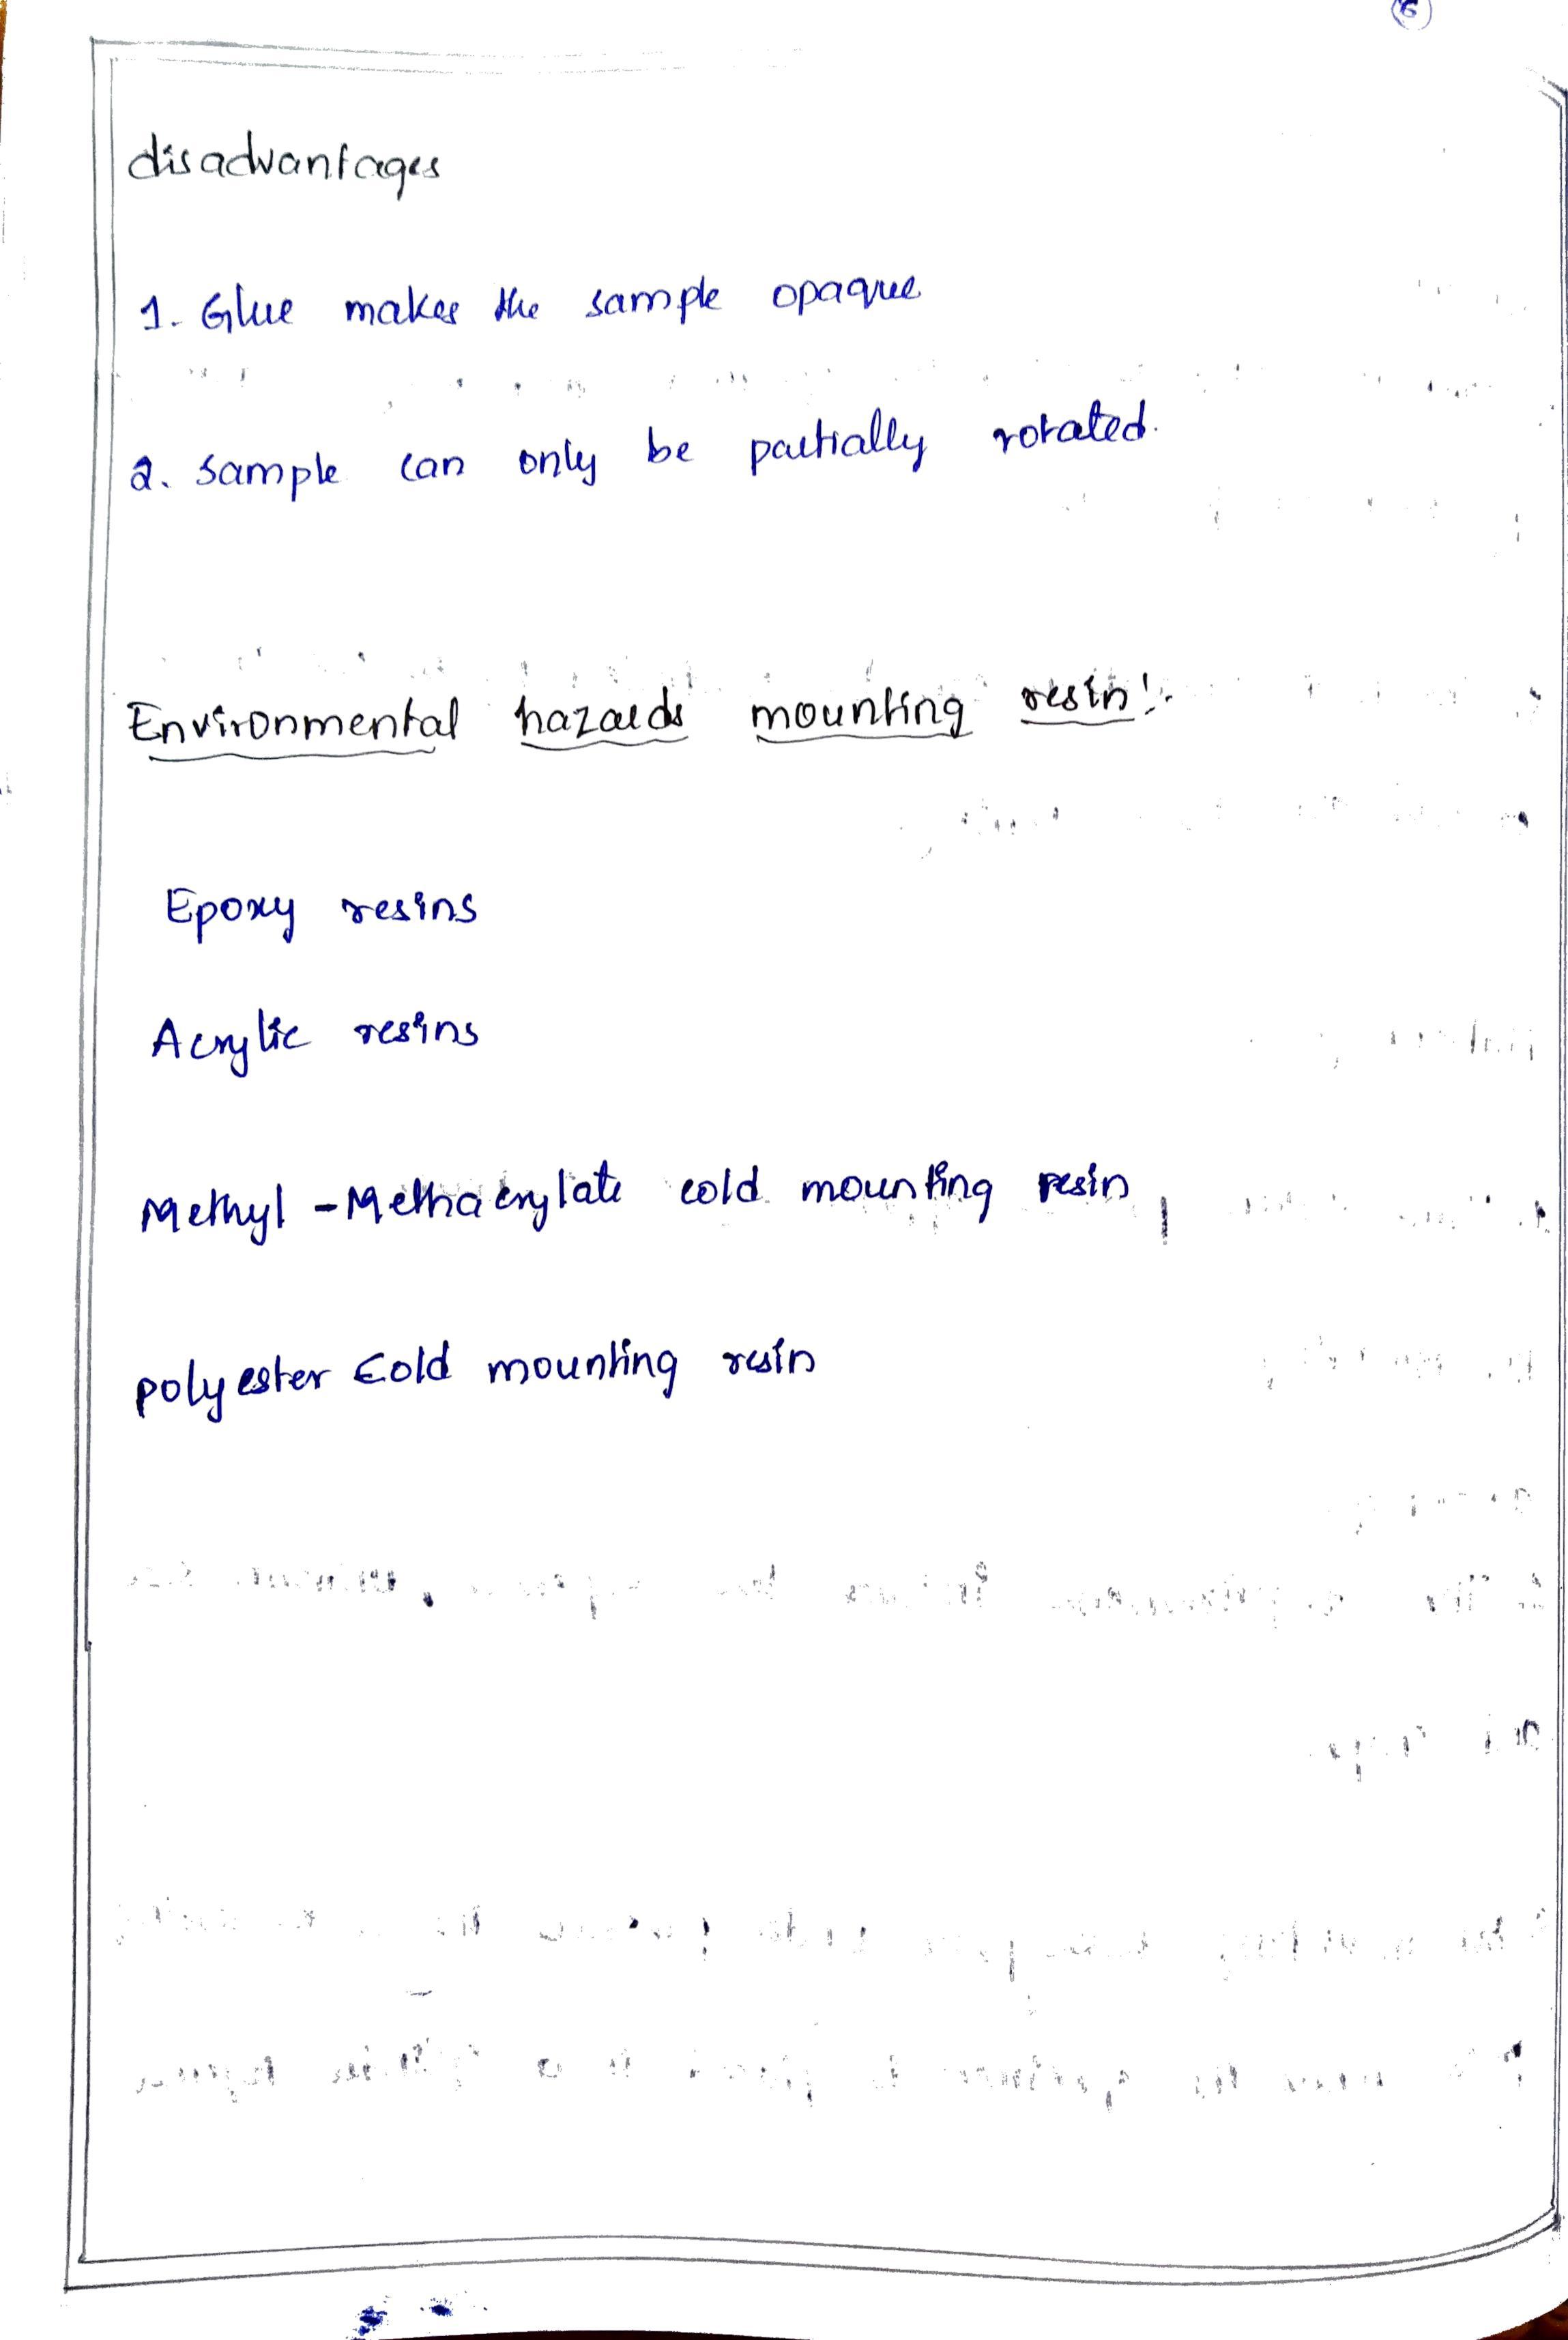 6
disadvantages
1. Glue makes the sample opaque
2. sample can only be partially rotated.
Environmental hazards mounting resin:-
Epoxy resins
Acrylic resins
Methyl-Methacrylate cold mounting resin
polyester cold mounting resin